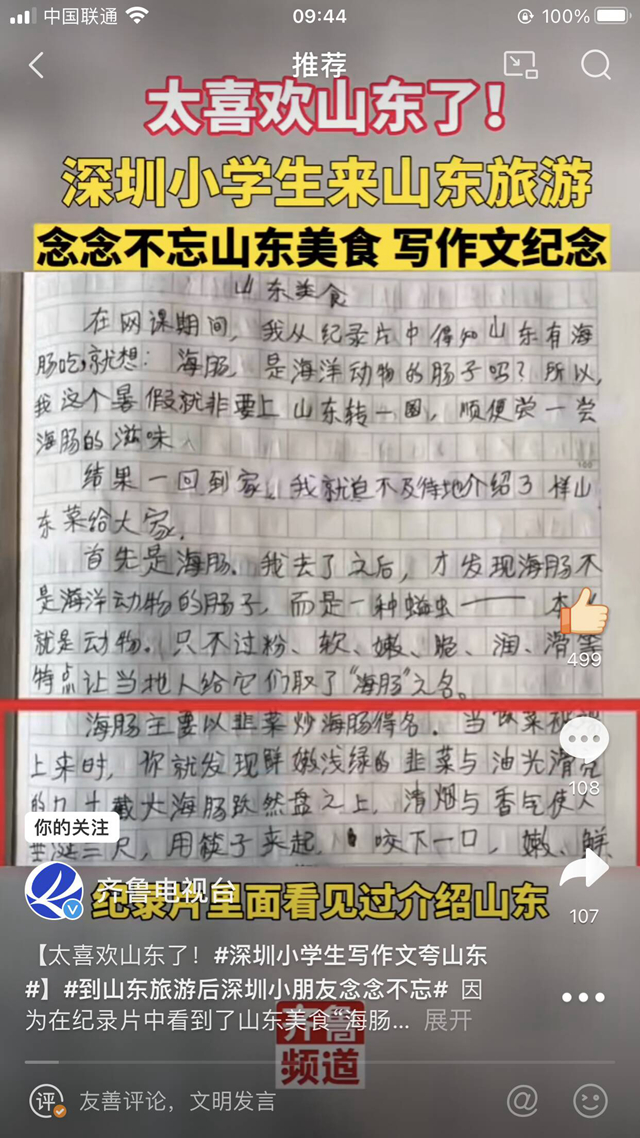 中国联通
09:44
100%
推荐
太喜欢山东了！
深圳小学生来山东旅游
念念不忘山东美食 写作文纪念
山东美食
在网课期间，我从纪录片中得知山东有海
肠吃，就想：海肠，是海洋动物的肠子吗？所以，
我这个暑假就非要上山东转一圈，顺便尝一尝
海肠的滋味
100
结果一回到家，我就迫不及待地介绍3样山
东菜给大家。
首先是海肠。我去了之后，才发现海肠不
是海洋动物的肠子，而是一种蝤虫——本
就是动物。只不过粉、软、嫩、脆、润、滑等
499
特点让当地人给它们取了“海肠”之名。
海肠主要以韭菜炒海肠得名。当
上来时，你就发现鲜嫩浅绿的韭菜与油光滑亮
108
的九十载大海肠跃然盘之上，清烟与香气使人
你的关注
垂涎三尺，用筷子夹起，咬下一口，嫩、鲜
齐鲁电视台
纪录片里面看见过介绍山东
107
【太喜欢山东了！#深圳小学生写作文夸山东
#】#到山东旅游后深圳小朋友念念不忘# 因
为在纪录片中看到了山东美食“海肠... 展开
齐鲁
频道
评 友善评论，文明发言
@